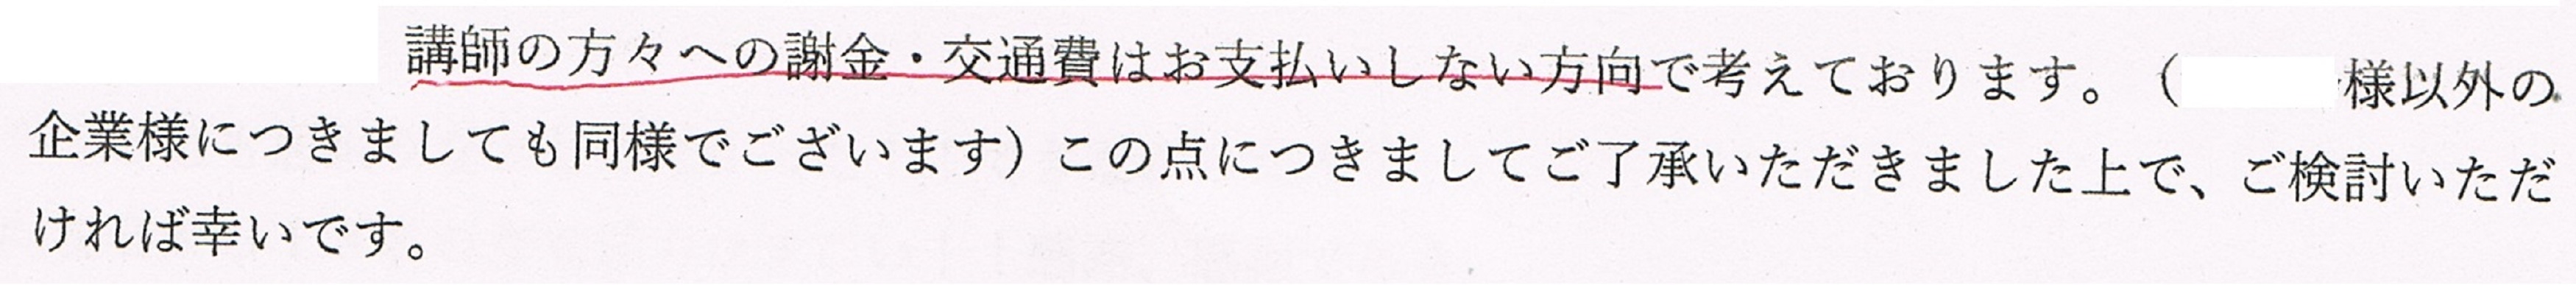 講師の方々への謝金・交通費はお支払いしない方向で考えております。（　　　様以外の
企業様につきましても同様でございます）この点につきましてご了承いただきました上で、ご検討いただ
ければ幸いです。